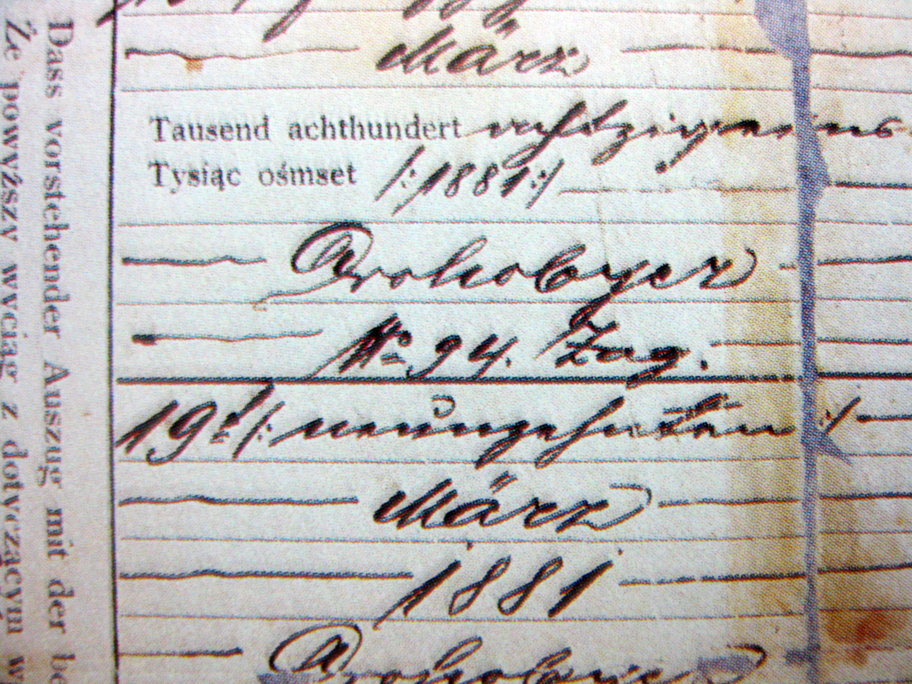 März
Tausend achthundert achtzigeins
Tysiąc ośmset /:1881:/
Drohobycz
No 94. Zag.
19t/: neunzehnten :/
März
1881
Drohobycz
Dass vorstehender Auszug mit der be
Że powyższy wyciąg z dotyczącym w